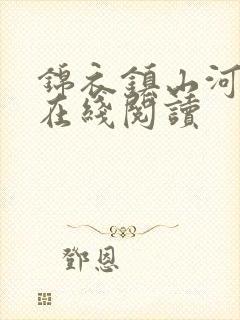 錦衣鎮山河
在綫閱讀
鄧恩